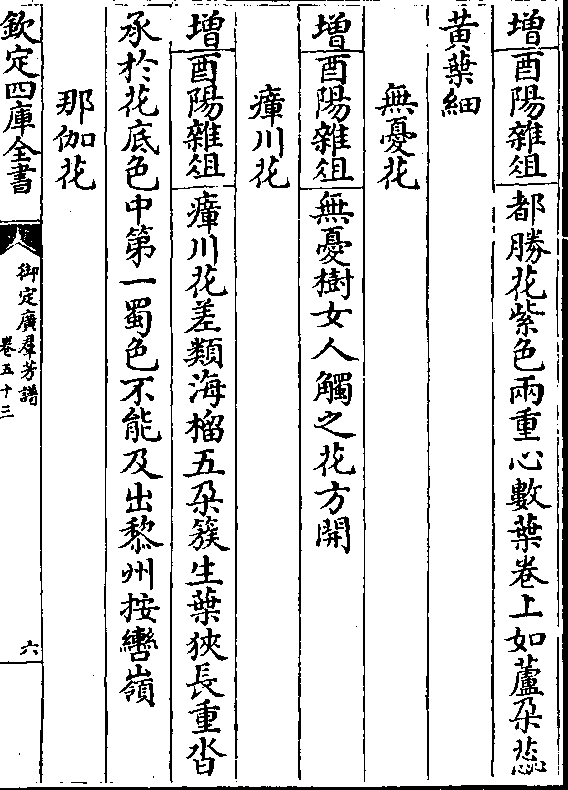 增酉陽雜俎都勝花紫色兩重心數葉卷上如蘆朵蕊
黃葉細
無憂花
增酉陽雜俎無憂樹女人觸之花方開
瘴川花
增酉陽雜俎瘴川花差類海榴五朵簇生葉狹長重沓
承於花底色中第一蜀色不能及出黎州按轡嶺
那伽花
欽定四庫全書
御定廣羣芳譜
卷五十三
六